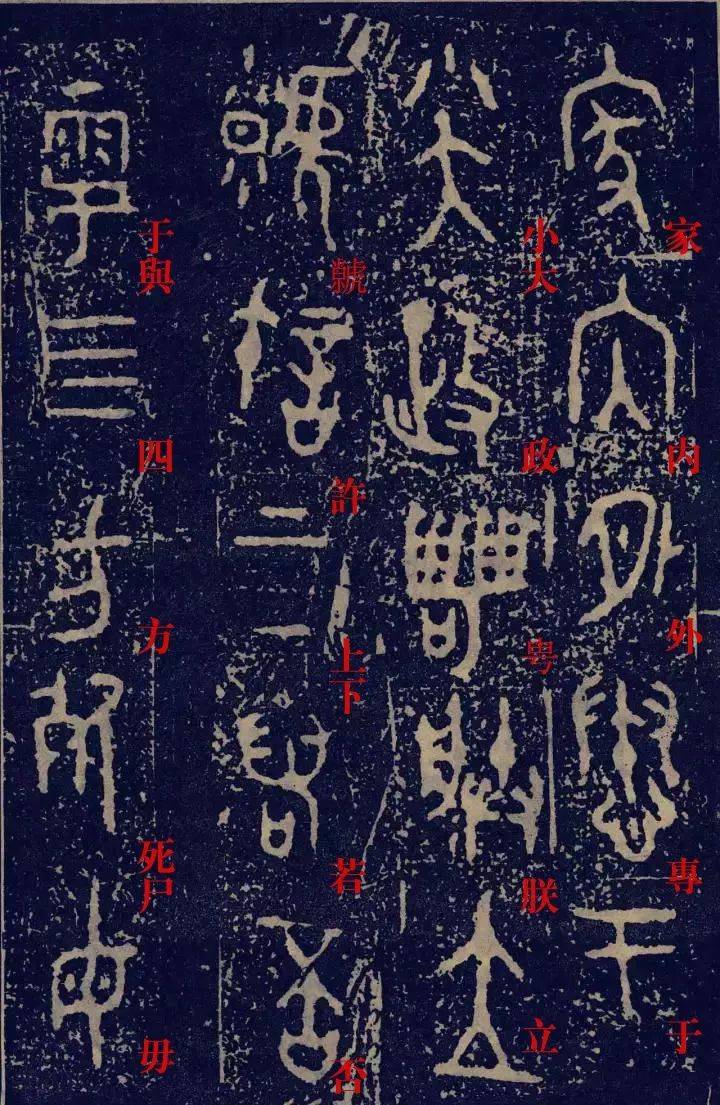 家内外專于
小大政甹朕立
虩許上下若否
于與四方死尸毋